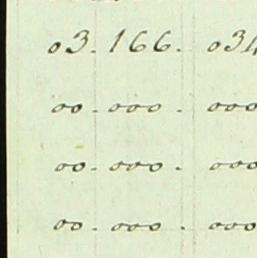 03. 166. 03
00. 000. 000
00. 000. 000
00. 000. 000